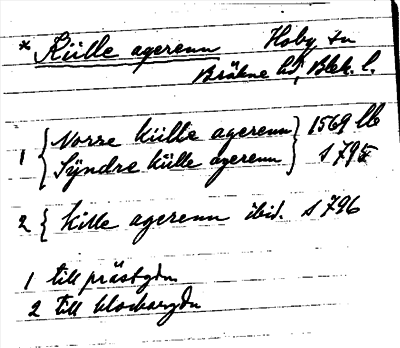 * Külle agerenn Hoby sn
Bräkne hd, Blek. l.
1 { Norre külle agerenn } 1569 lb
Syndre külle agerenn } s 795
2 { kille agerenn ibid. s 796
1 till prästgdn
2 till klockargdn